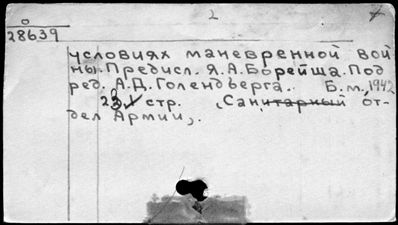 2
о
28639
условиях маневренной вой
ны. Предисл. Я.А.Борейша. Под
ред. А.Д.Голендберга. Б.м., 1942
стр. (Санитарный от-
дел Армии).